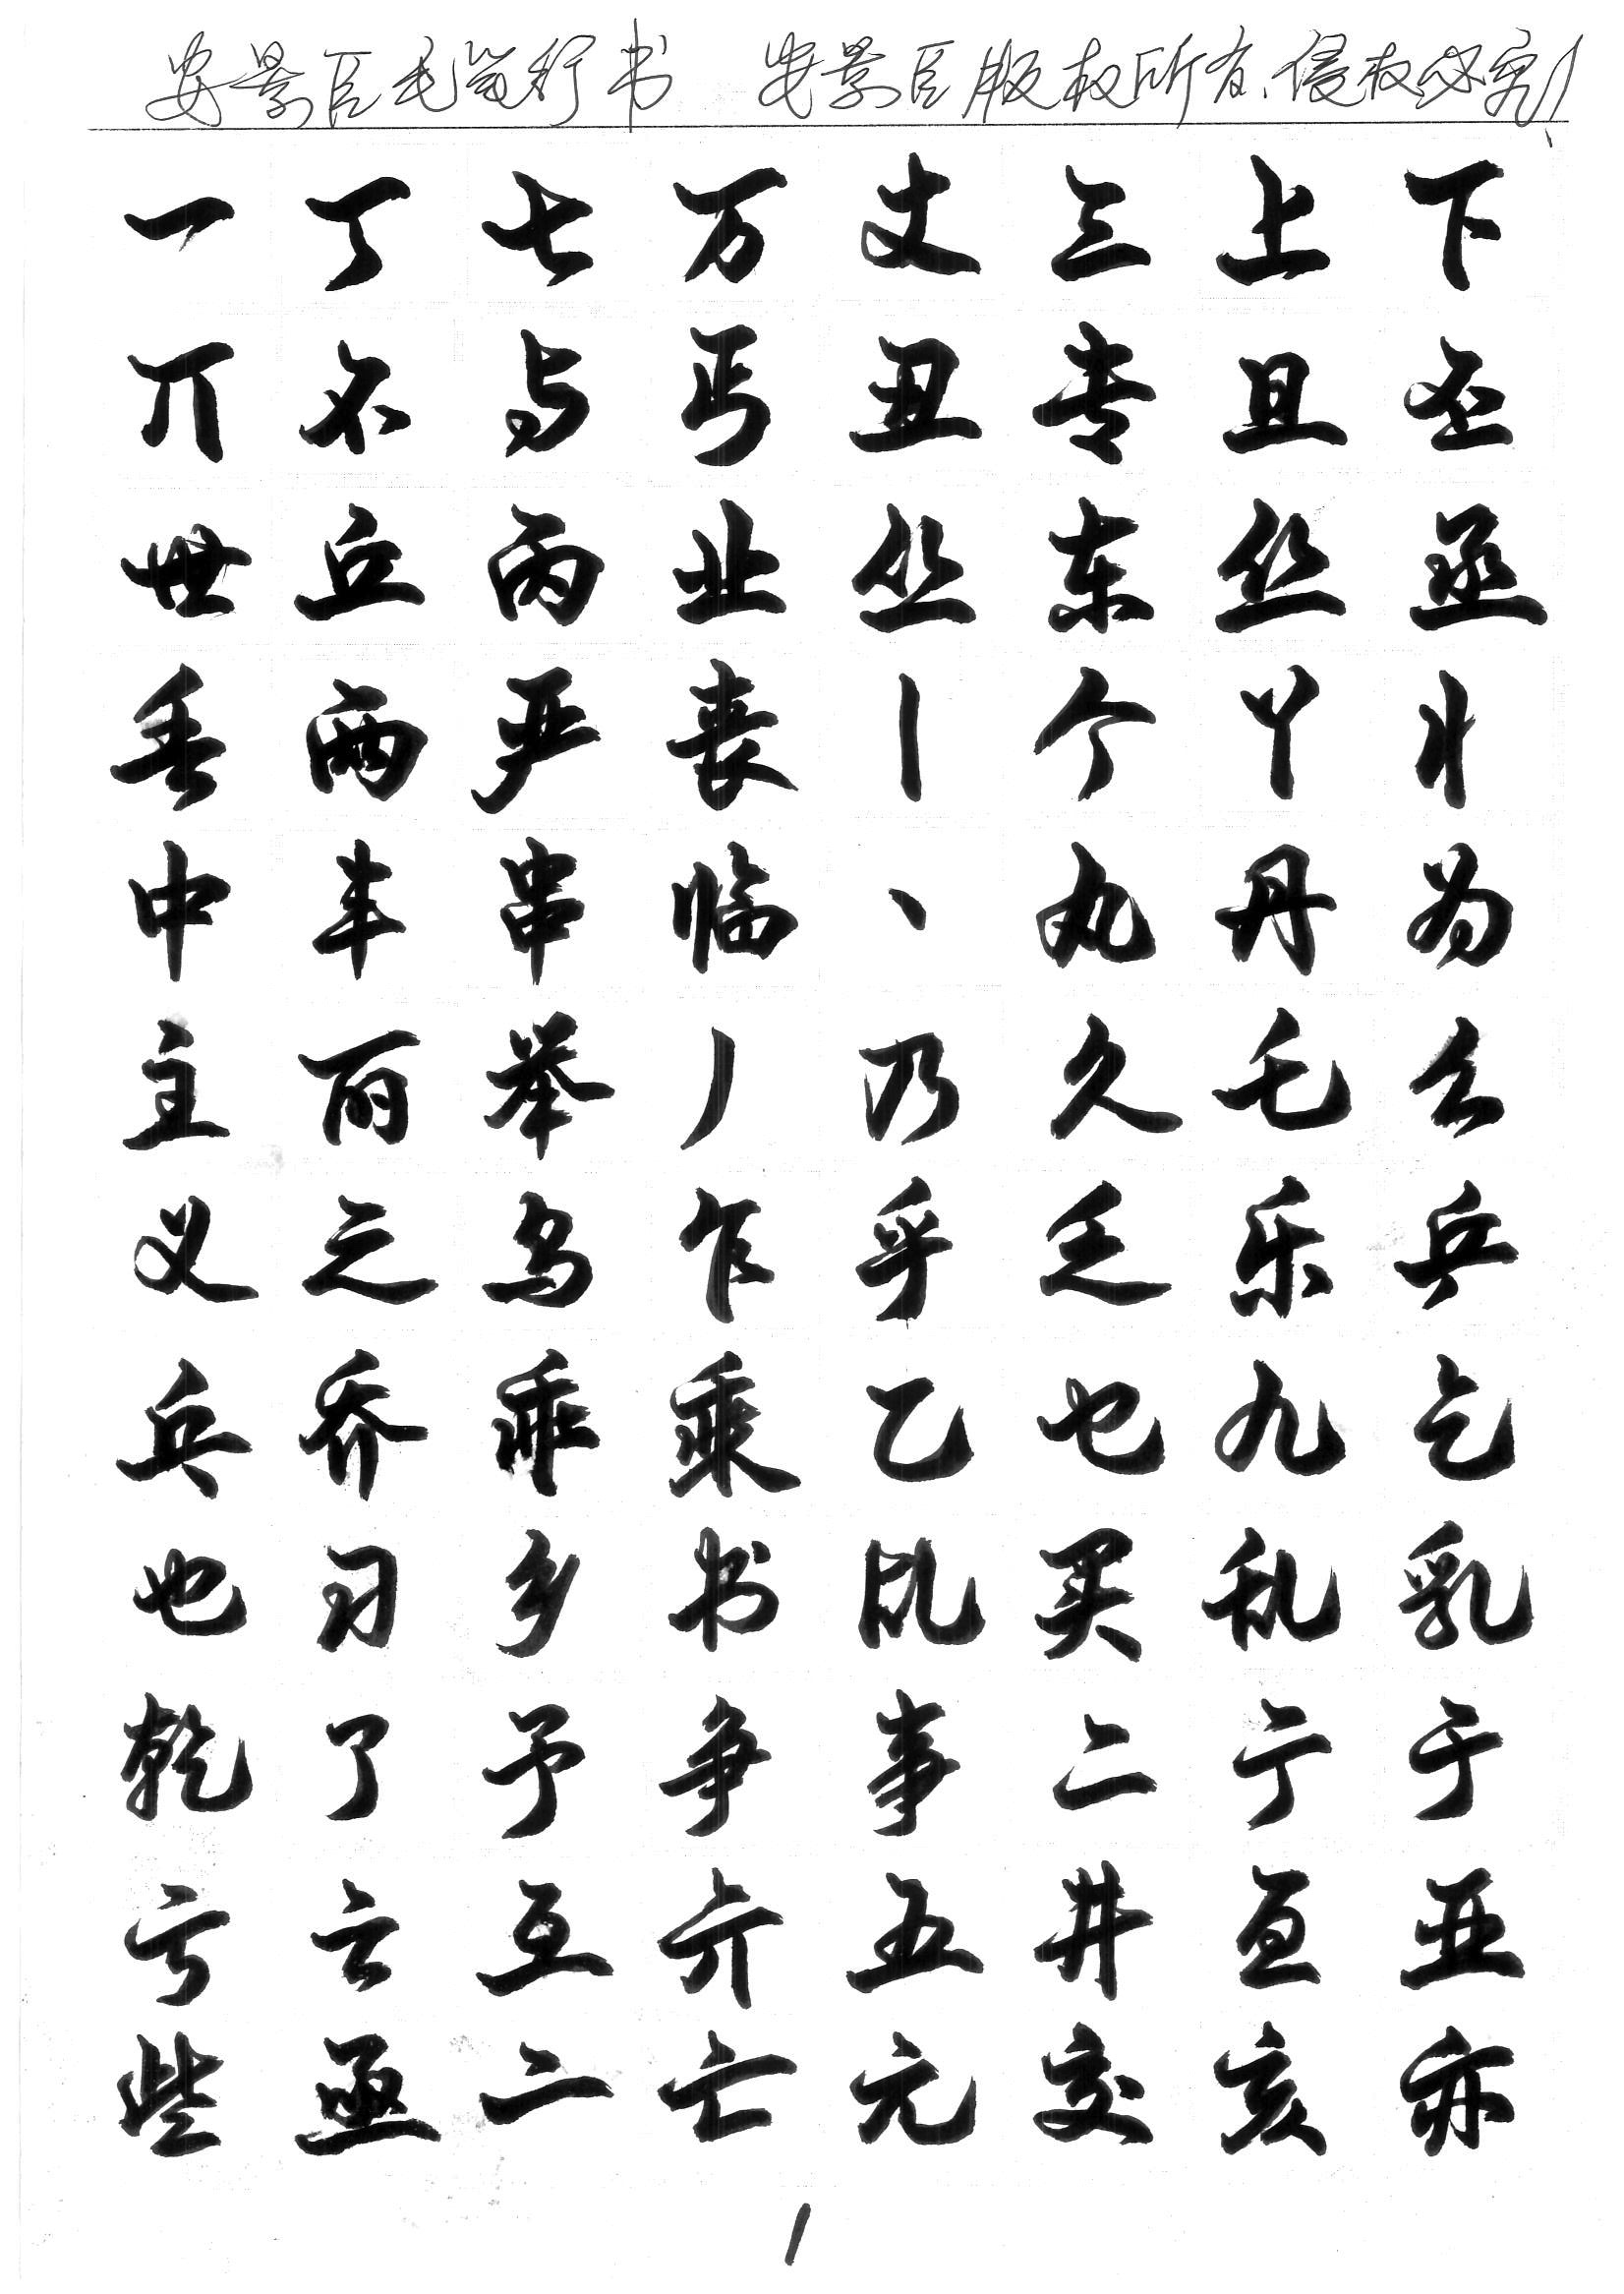 安景臣毛笔行书 安景臣版权所有、侵权必究!
一 丁 七 万 丈 三 上 下
丌 不 与 丐 丑 专 且 丕
世 丘 丙 业 丛 东 丝 丞
丢 两 严 丧 丨 个 丫 丬
中 丰 串 临 丶 丸 丹 为
主 丽 举 丿 乃 久 乇 么
义 之 乌 乍 乎 乏 乐 乒
乓 乔 乖 乘 乙 乜 九 乞
也 习 乡 书 乩 买 乱 乳
乾 了 予 争 事 二 亍 于
亏 云 互 亓 五 井 亘 亚
些 亟 亠 亡 亢 交 亥 亦
1